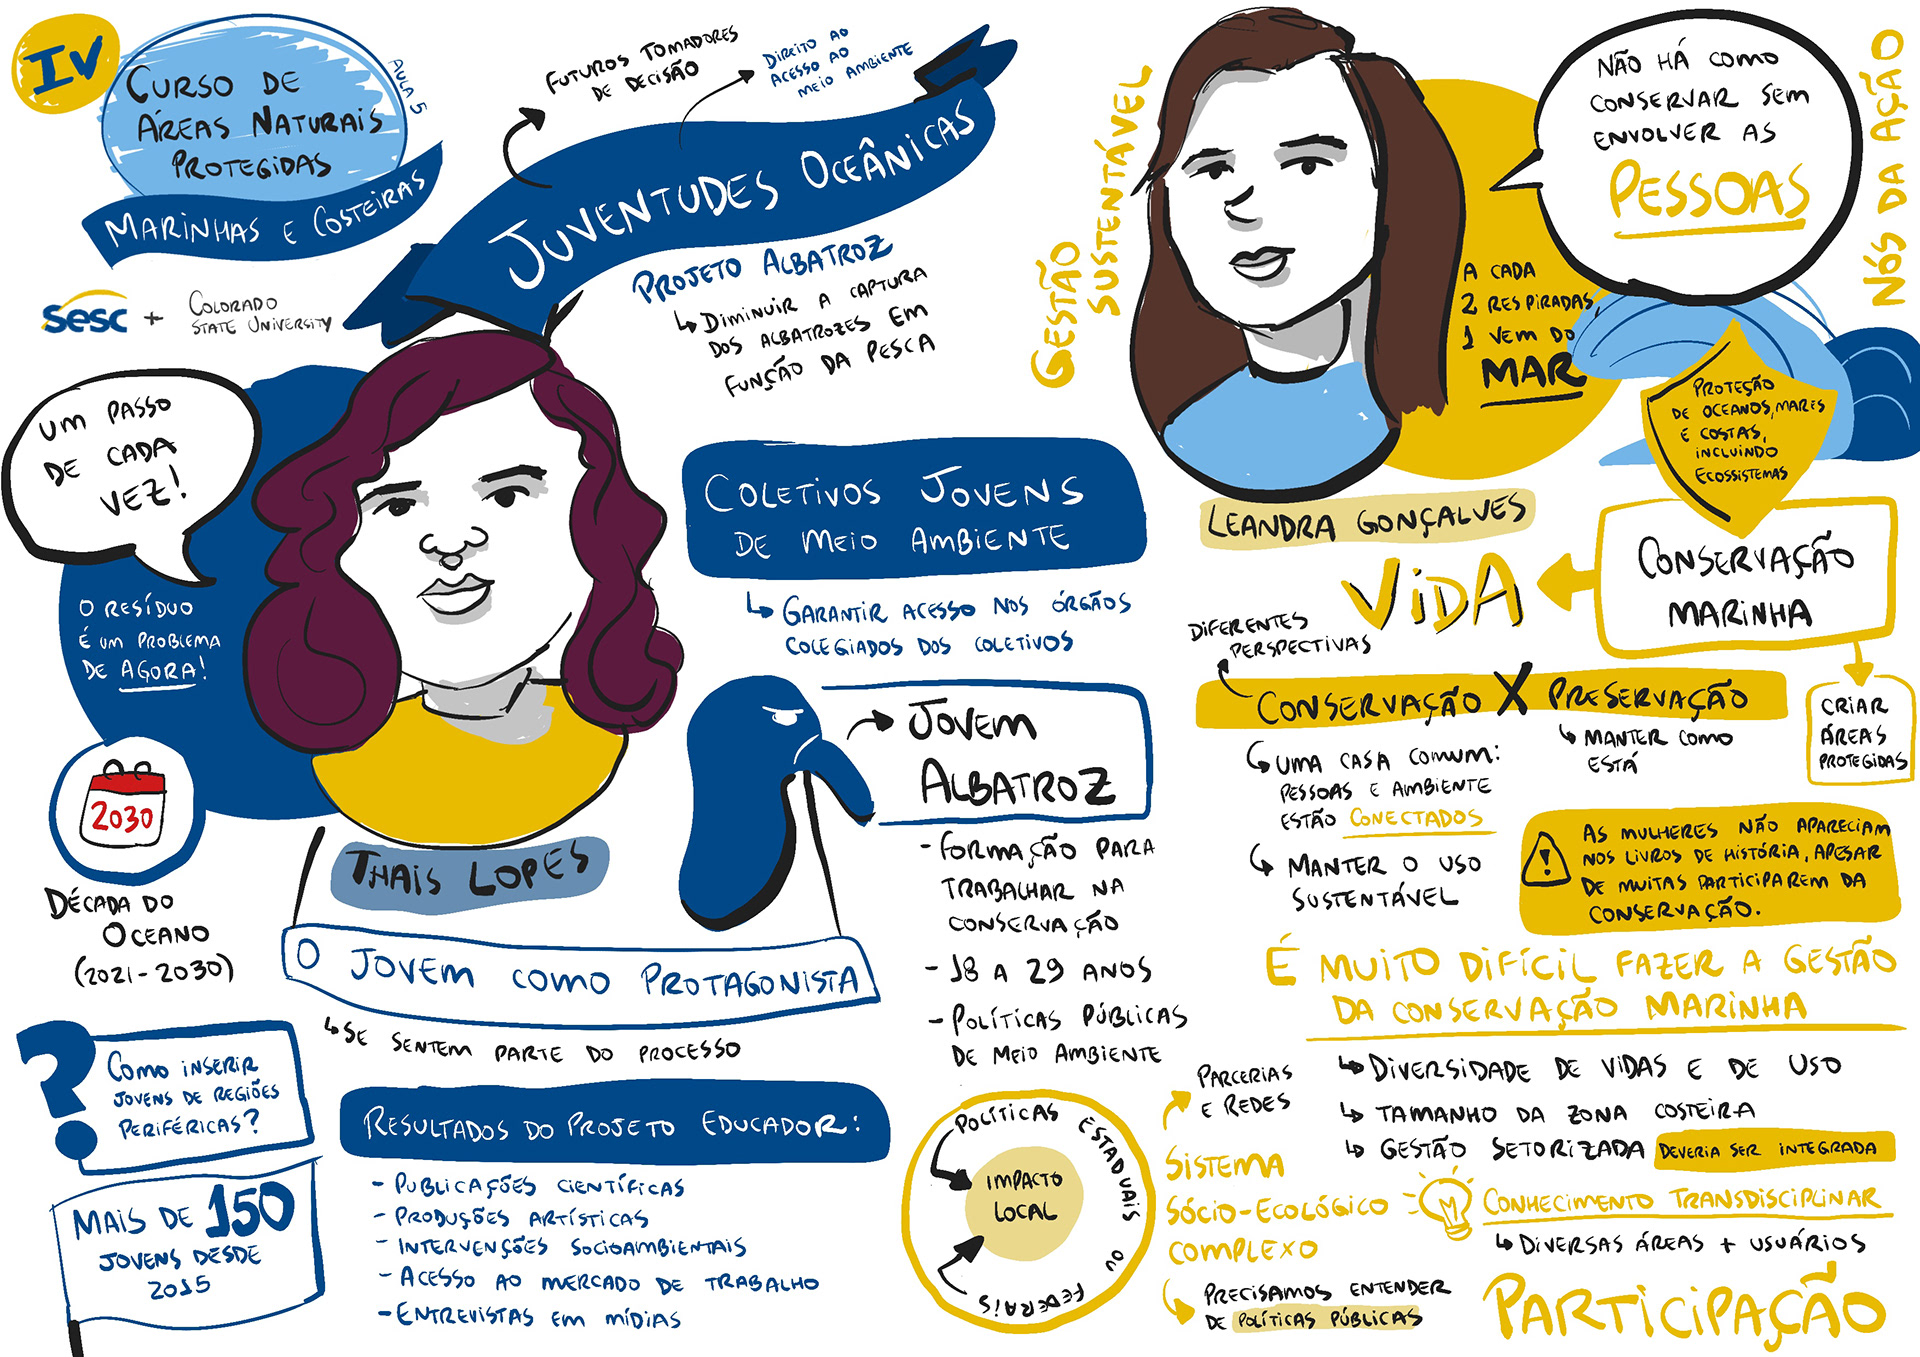 IV
CURSO DE
ÁREAS NATURAIS
PROTEGIDAS
MARINHAS E COSTEIRAS
AULA 5
Sesc + COLORADO
STATE UNIVERSITY
FUTUROS TOMADORES
DE DECISÃO
DIREITO AO
ACESSO AO
MEIO AMBIENTE
JUVENTUDES OCEÂNICAS
PROJETO ALBATROZ
DIMINUIR A CAPTURA
DOS ALBATROZES EM
FUNÇÃO DA PESCA
UM PASSO
DE CADA
VEZ!
O RESÍDUO
É UM PROBLEMA
DE AGORA!
2030
DÉCADA DO
OCEANO
(2021-2030)
THAIS LOPES
COLETIVOS JOVENS
DE MEIO AMBIENTE
GARANTIR ACESSO NOS ÓRGÃOS
COLEGIADOS DOS COLETIVOS
JOVEM
ALBATROZ
- FORMAÇÃO PARA
TRABALHAR NA
CONSERVAÇÃO
- 18 A 29 ANOS
- POLÍTICAS PÚBLICAS
DE MEIO AMBIENTE
O JOVEM COMO PROTAGONISTA
SE SENTEM PARTE DO PROCESSO
?
COMO INSERIR
JOVENS DE REGIÕES
PERIFÉRICAS?
MAIS DE 150
JOVENS DESDE
2015
RESULTADOS DO PROJETO EDUCADOR:
- PUBLICAÇÕES CIENTÍFICAS
- PRODUÇÕES ARTÍSTICAS
- INTERVENÇÕES SOCIOAMBIENTAIS
- ACESSO AO MERCADO DE TRABALHO
- ENTREVISTAS EM MÍDIAS
GESTÃO
SUSTENTÁVEL
NÃO HÁ COMO
CONSERVAR SEM
ENVOLVER AS
PESSOAS
NÓS DA AÇÃO
A CADA
2 RESPIRADAS,
1 VEM DO
MAR
PROTEÇÃO
DE OCEANOS, MARES
E COSTAS,
INCLUINDO
ECOSSISTEMAS
LEANDRA GONÇALVES
CONSERVAÇÃO
MARINHA
VIDA
CRIAR
ÁREAS
PROTEGIDAS
DIFERENTES
PERSPECTIVAS
CONSERVAÇÃO X PRESERVAÇÃO
UMA CASA COMUM:
PESSOAS E AMBIENTE
ESTÃO CONECTADOS
MANTER O USO
SUSTENTÁVEL
MANTER COMO
ESTÁ
! AS MULHERES NÃO APARECIAM
NOS LIVROS DE HISTÓRIA, APESAR
DE MUITAS PARTICIPAREM DA
CONSERVAÇÃO.
É MUITO DIFÍCIL FAZER A GESTÃO
DA CONSERVAÇÃO MARINHA
DIVERSIDADE DE VIDAS E DE USO
TAMANHO DA ZONA COSTEIRA
GESTÃO SETORIZADA DEVERIA SER INTEGRADA
POLÍTICAS ESTADUAIS OU FEDERAIS
IMPACTO
LOCAL
PARCERIAS
E REDES
SISTEMA
SÓCIO-ECOLÓGICO
COMPLEXO
PRECISAMOS ENTENDER
DE POLÍTICAS PÚBLICAS
CONHECIMENTO TRANSDISCIPLINAR
DIVERSAS ÁREAS + USUÁRIOS
PARTICIPAÇÃO